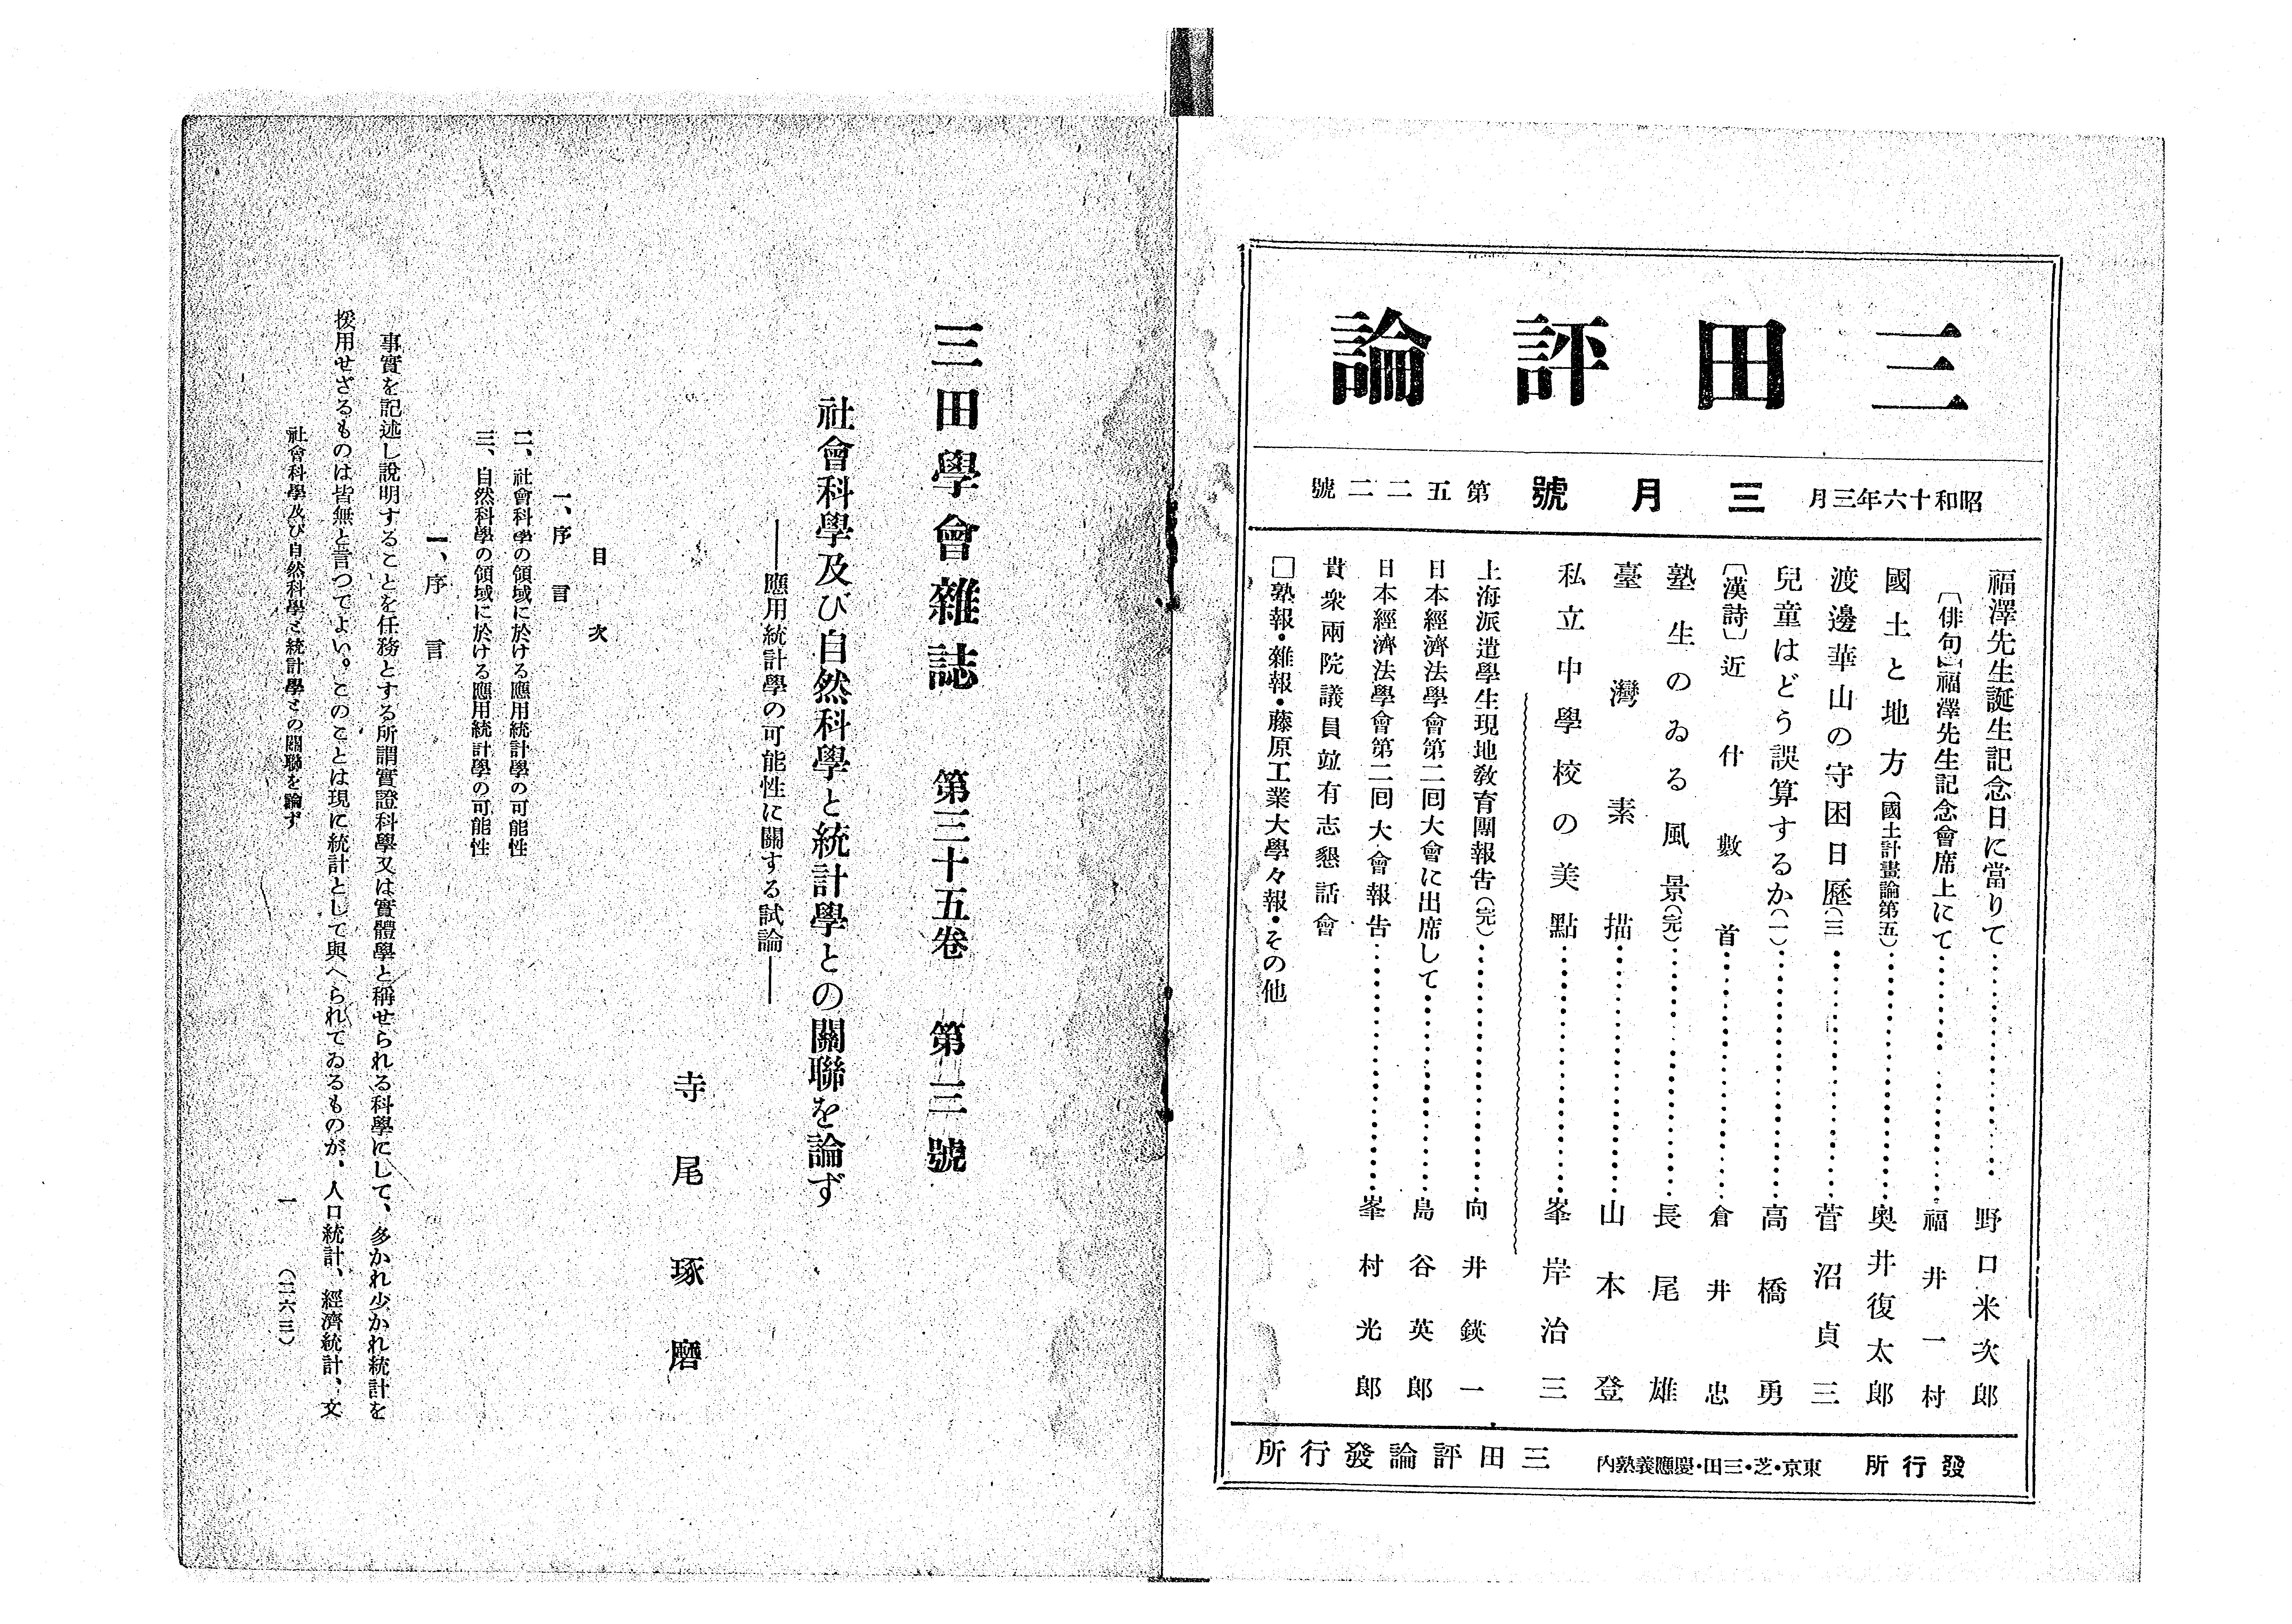 三田評論
昭和十六年三月 三月號 第五二二號
福澤先生誕生記念日に當りて 野口米次郎
〔俳句〕福澤先生記念會席上にて 福井一村
國土と地方（國土計畫論第五） 奥井復太郎
渡邊華山の守困日歷（三 菅沼貞三
兒童はどう誤算するか（一） 高橋勇
〔漢詩〕近什數首 倉井忠
塾生のゐる風景（完） 長尾雄
臺灣素描 山本登
私立中學校の美點 峯岸治三
上海派遣學生現地敎育團報告（完） 向井鍈一
日本經濟法學會第二回大會に出席して 島谷英郎
日本經濟法學會第二回大會報告 峯村光郎
貴衆兩院議員竝有志懇話會
□塾報・雜報・藤原工業大學々報・その他
發行所 東京・芝・三田・慶應義塾內 三田評論發行所
三田學會雜誌 第三十五卷 第三號
社會科學及び自然科學と統計學との關聯を論ず
――應用統計學の可能性に關する試論――
寺尾琢磨
目次
一、序言
二、社會科學の領域に於ける應用統計學の可能性
三、自然科學の領域に於ける應用統計學の可能性
一、序言
事實を記述し說明することを任務とする所謂實證科學又は實體學と稱せられる科學にして、多かれ少かれ統計を
援用せざるものは皆無と言つてよい。このことは現に統計として與へられてゐるものが、人口統計、經濟統計、文
社會科學及び自然科學と統計學との關聯を論ず
一 （二六三）